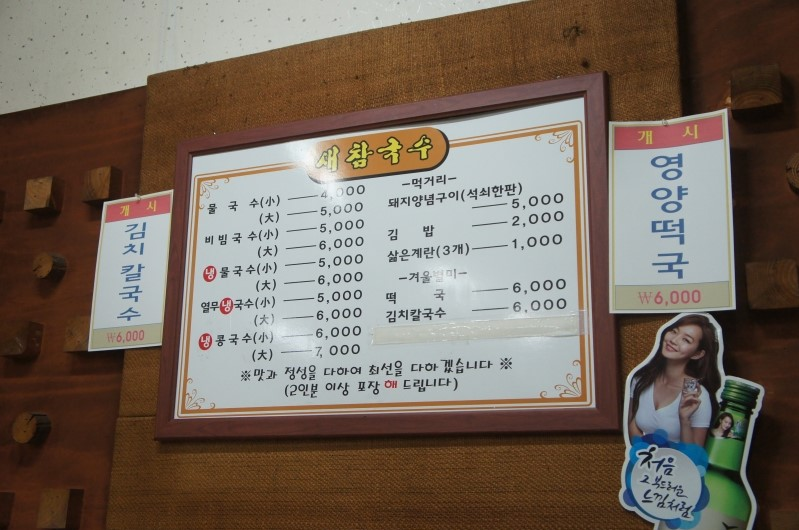 새참국수
물 국 수(小) ─ 4,000
(大) ─ 5,000
비빔국수(小) ─ 5,000
(大) ─ 6,000
냉물국수(小) ─ 5,000
(大) ─ 6,000
열무냉국수(小) ─ 5,000
(大) ─ 6,000
냉콩국수(小) ─ 6,000
(大) ─ 7,000
-먹거리-
돼지양념구이(석쇠한판)
─ 5,000
김 밥 ─ 2,000
삶은계란(3개) ─ 1,000
-겨울별미-
떡 국 ─ 6,000
김치칼국수 ─ 6,000
※맛과 정성을 다하여 최선을 다하겠습니다※
(2인분 이상 포장해 드립니다)
개 시
김치칼국수
₩6,000
개 시
영양떡국
₩6,000
처음
그 부드러운
느낌처럼